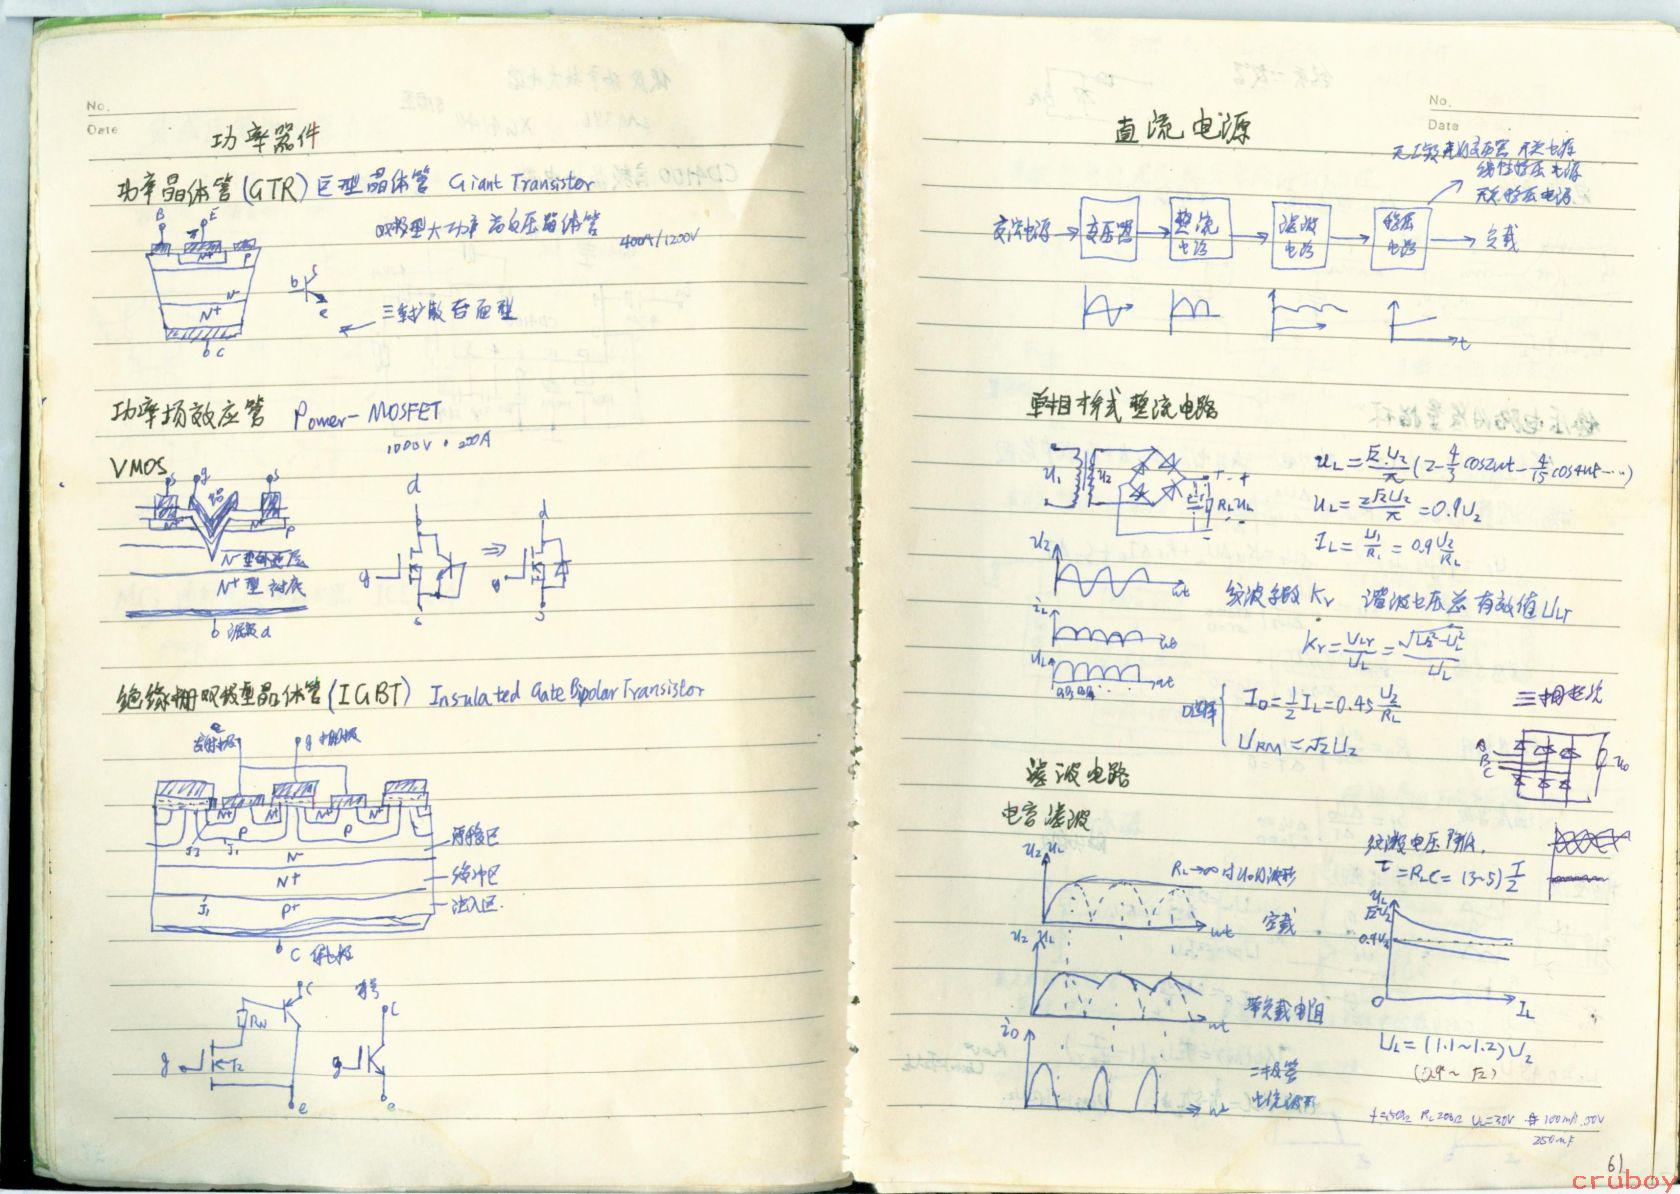 No.
Date
功率器件
功率晶体管(GTR) 巨型晶体管 Giant Transistor
双极型大功率高反压晶体管
400A/1200V
B E
N+ P
N-
N+
b C
b c e
三重扩散台面型
功率场效应管 Power-MOSFET
1000V · 200A
VMOS
s g s
铝
N+ P
N-型外延层
N+型衬底
b 漏极d
d g s ⇒ d g s
绝缘栅双极型晶体管(IGBT) Insulated Gate Bipolar Transistor
e
发射极 g 栅极
N+ N+ N+ N+
P P
J3 J1
N- 漂移区
N+ 缓冲区
J1 P+ 注入区
C 集电极
符号
c RN g T2 e
c g e
No.
Date
直流电源
线性稳压电源
开关稳压电源
交流电源 → 变压器 → 整流电路 → 滤波电路 → 稳压电路 → 负载
t
单相桥式整流电路
U1 U2 + - + RL UL -
uL = √2U2/π (2 - 4/3 cos2ωt - 4/15 cos4ωt ⋯)
UL = 2√2U2/π = 0.9U2
IL = U1/R1 = 0.9 U2/RL
U2 ωt
iL ωt
UL ωt
纹波系数 Kr 谐波电压总有效值 ULr
Kr = ULr/UL = √(U2²-UL²)/UL
D选择 { ID = 1/2 IL = 0.45 U2/RL
URM = √2 U2
三相整流
A
B
C
uo
滤波电路
电容滤波
纹波电压降低.
τ = RLC = (3~5) T/2
u2 uL
RL→∞时uo的波形
ωt 空载
u2 uL
ωt 带负载电阻
iD
二极管
电流波形
ωt
UL
√2U2
0.9U2
O IL
UL = (1.1~1.2)U2
(0.9 ~ √2)
UL=30V 100mA 50V
250μF
61
cruboy